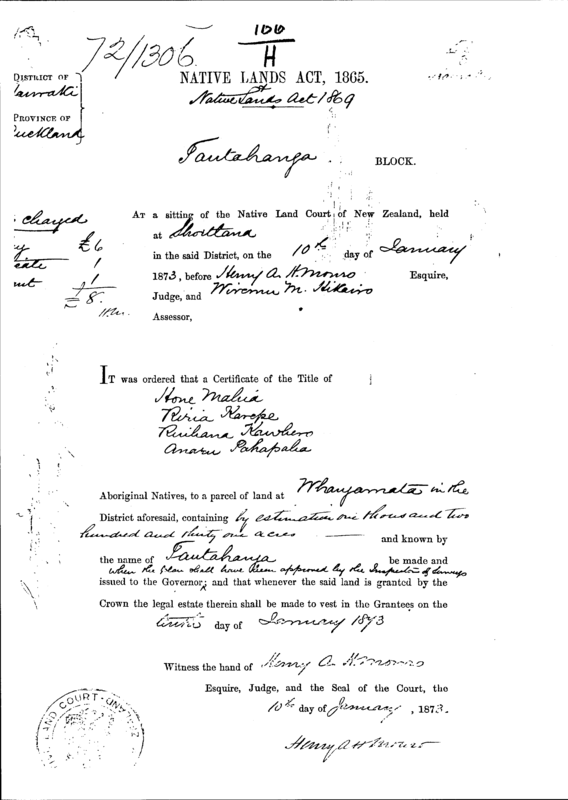 100
H
72/1306
NATIVE LANDS ACT, 1865.
Native Lands Act 1869
DISTRICT OF
PROVINCE OF
uckland
Tautahanga BLOCK.
AT a sitting of the Native Land Court of New Zealand, held
at Shortland
in the said District, on the 10th day of January
1873, before Henry A. H. Monro Esquire,
Judge, and Wiremu M. Hikairo
Assessor,
charged
£6
1
1
£8.
IT was ordered that a Certificate of the Title of
Hone Mahia
Riria Karepe
Ruihana Kawhero
Anaru Pahapaha
Aboriginal Natives, to a parcel of land at Whangamata in the
District aforesaid, containing by estimation one thousand two
hundred and thirty one acres and known by
the name of Tautahanga be made and
when the plan shall have been approved by the Inspector of Surveys
issued to the Governor; and that whenever the said land is granted by the
Crown the legal estate therein shall be made to vest in the Grantees on the
tenth day of January 1873
Witness the hand of Henry A. H. Monro
Esquire, Judge, and the Seal of the Court, the
10th day of January, 1873.
Henry A H Monro
LAND COURT